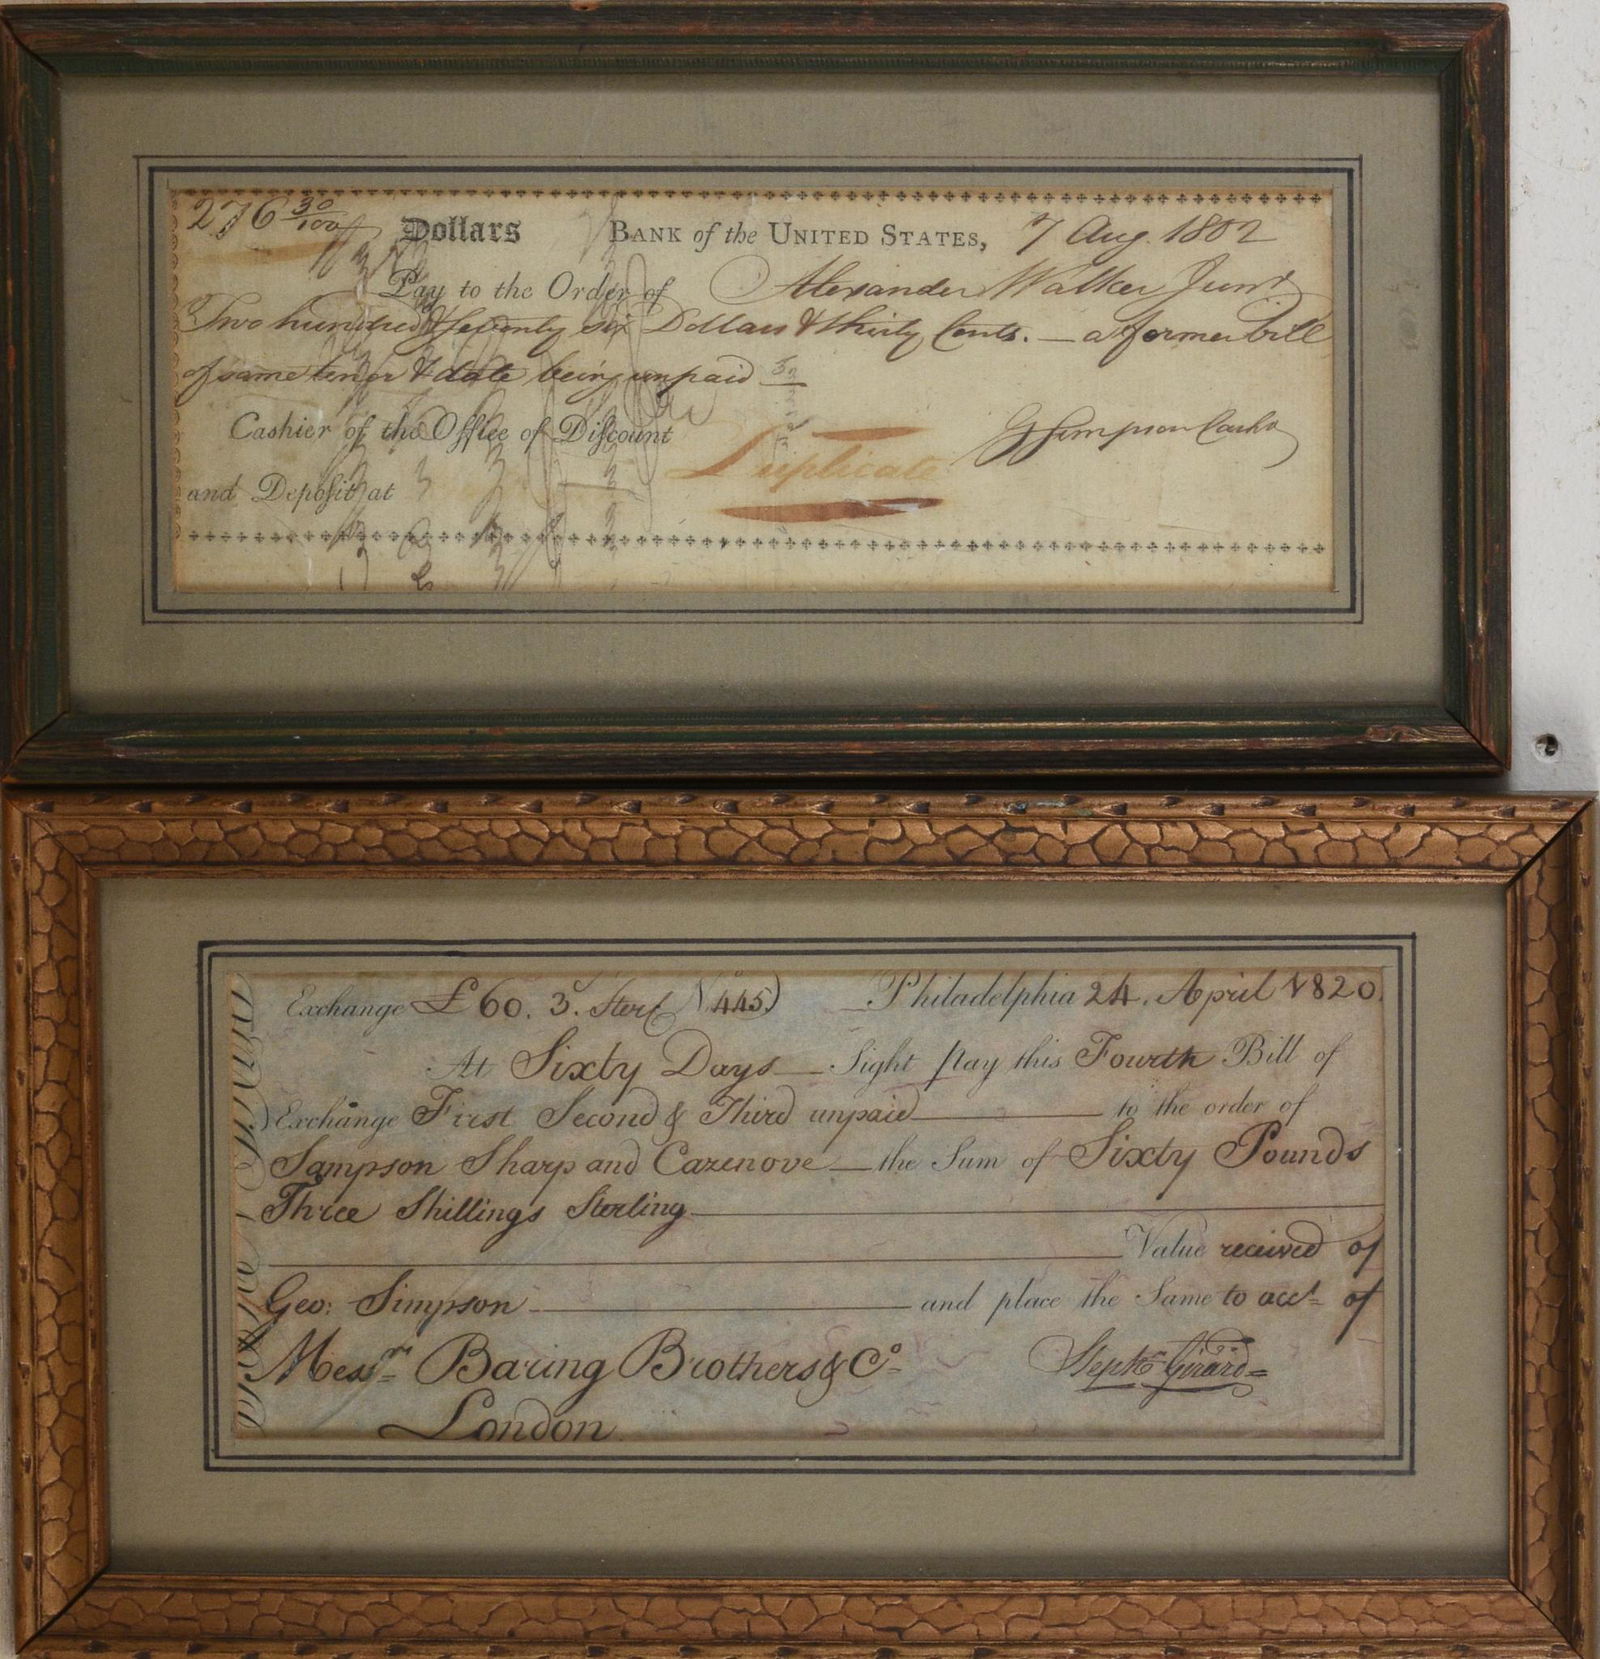 276 30/100 Dollars BANK of the UNITED STATES, 7 Aug. 1802
Pay to the Order of Alexander Walker Junr
Two hundred & seventy six Dollars & thirty Cents. — a former bill
of same tenor & date being unpaid
Cashier of the Office of Discount G Simpson Cashr
and Deposit at Duplicate
Exchange £60. 3. Sterl No 445) Philadelphia 24. April 1820.
At Sixty Days Sight pay this Fourth Bill of
Exchange First Second & Third unpaid to the order of
Sampson Sharp and Cazenove the Sum of Sixty Pounds
Three Shillings Sterling
Value received of
Geo: Simpson and place the Same to acct of
Messrs Baring Brothers & Co Steph Girard
London